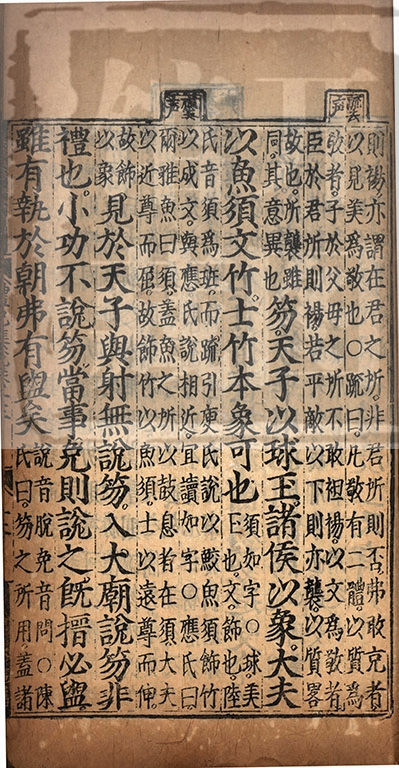 則裼亦謂在君之所非君所則否弗敢充者
以見美為敬也○䟽曰凡敬有二體以質為
敬者子於父母之所不敢袒裼以文為敬者
臣於君所則裼若平敵以下則亦襲以質畧
故也所襲雖
同其意異也
笏天子以球玉諸侯以象大夫
以魚須文竹士竹本象可也
須如字○球美
玉也文飾也陸
氏音須為班而䟽引庾氏說以鮫魚須飾竹
以成文與應氏說相近宜讀如字○應氏曰
爾雅魚曰須蓋魚之所以鼓息者在須大夫
以近尊而屈故飾竹以魚須士以遠尊而伸
故飾
以象
見於天子與射無說笏入大廟說笏非
禮也小功不說笏當事免則說之旣搢必盥
雖有執於朝弗有盥矣
說音脫免音問○陳
氏曰笏之所用蓋諸